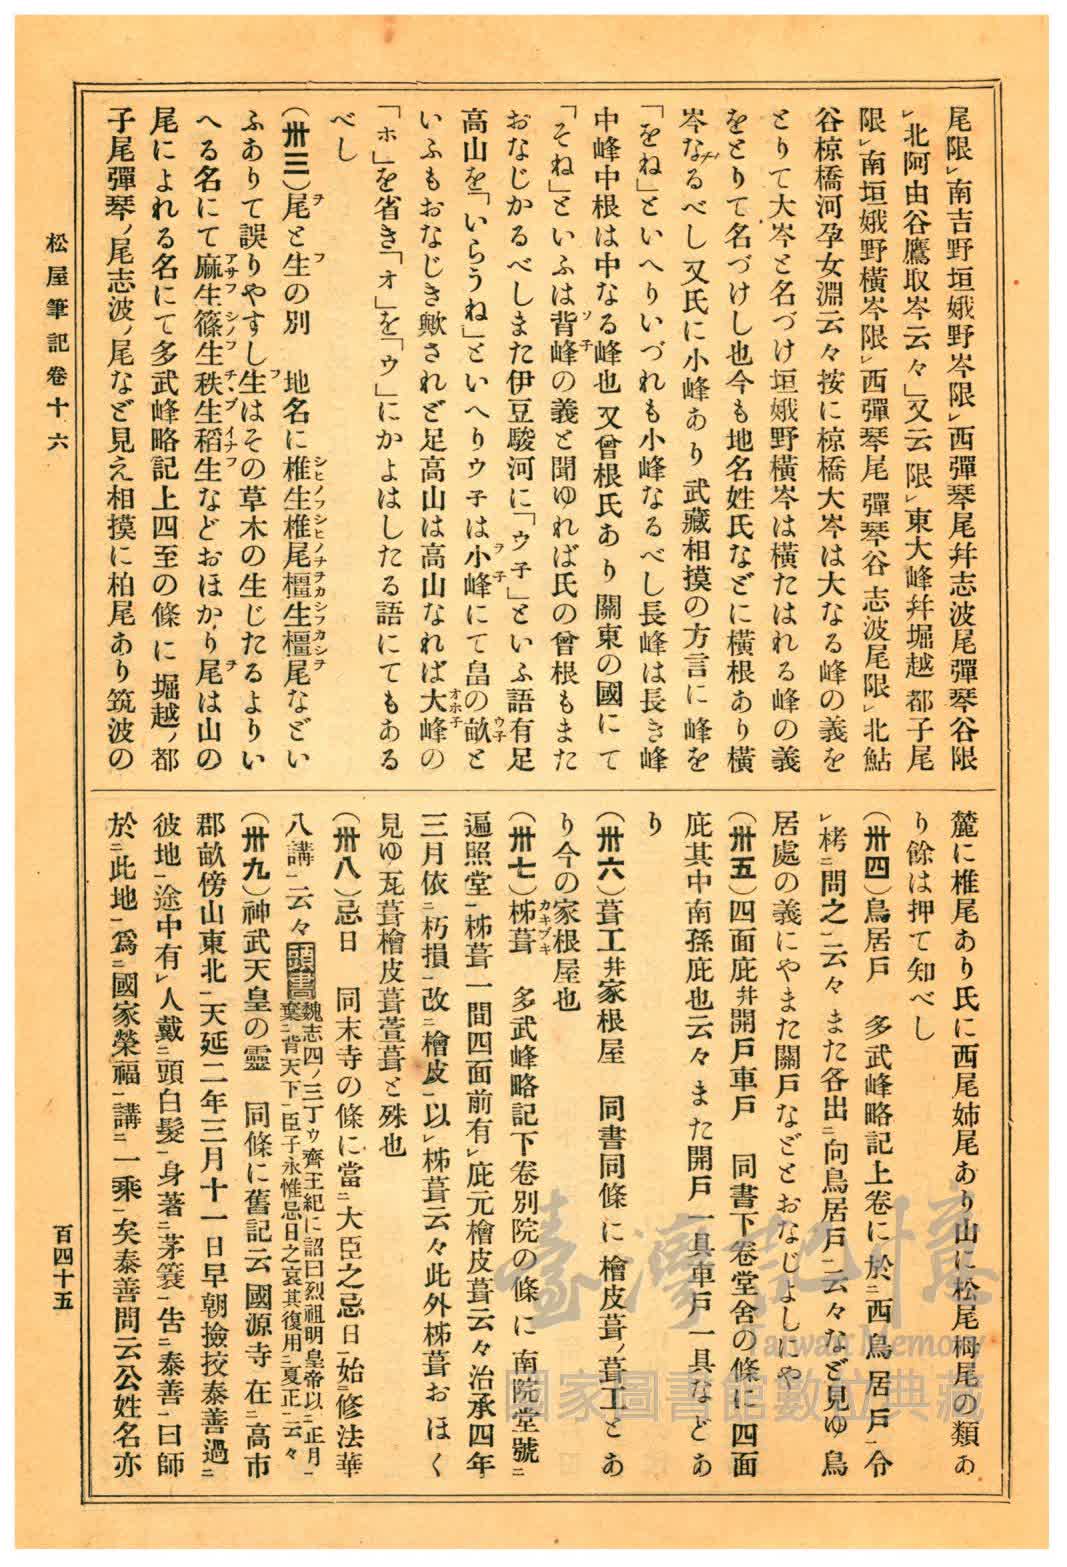 尾限㆑南吉野垣娥野岑限㆑西彈琴尾幷志波尾彈琴谷限
㆑北阿由谷鷹取岑云々」又云限㆑東大峰幷堀越都子尾
限㆑南垣娥野橫岑限㆑西彈琴尾彈琴谷志波尾限㆑北鮎
谷椋橋河孕女淵云々按に椋橋大岑は大なる峰の義を
とりて大岑と名づけ垣娥野橫岑は橫たはれる峰の義
をとりて名づけし也今も地名姓氏などに橫根あり橫
岑なるべし又氏に小峰あり武藏相摸の方言に峰を
「をね」といへりいづれも小峰なるべし長峰は長き峰
中峰中根は中なる峰也又曾根氏あり關東の國にて
「そね」といふは背峰の義と聞ゆれば氏の曾根もまた
おなじかるべしまた伊豆駿河に「ウ子」といふ語有足
高山を「いらうね」といへりウ子は小峰にて畠の畝と
いふもおなじき歟されど足高山は高山なれば大峰の
「ホ」を省き「オ」を「ウ」にかよはしたる語にてもある
べし
(卅三)尾と生の別 地名に椎生椎尾橿生橿尾などい
ふありて誤りやすし生はその草木の生じたるよりい
へる名にて麻生篠生秩生稻生などおほかり尾は山の
尾によれる名にて多武峰略記上四至の條に堀越ノ都
子尾彈琴ノ尾志波ノ尾など見え相摸に柏尾あり筑波の
麓に椎尾あり氏に西尾姉尾あり山に松尾栂尾の類あ
り餘は押て知べし
(卅四)鳥居戸 多武峰略記上卷に於㆓西鳥居戸㆒令
㆑栲㆓問之㆒云々また各出㆓向鳥居戸㆒云々など見ゆ鳥
居處の義にやまた關戸などとおなじよしにや
(卅五)四面庇幷開戸車戸 同書下卷堂舍の條に四面
庇其中南孫庇也云々また開戸一具車戸一具などあ
り
(卅六)葺工幷家根屋 同書同條に檜皮葺ノ葺工とあ
り今の家根屋也
(卅七)柹葺 多武峰略記下卷別院の條に南院堂號㆓
遍照堂㆒柹葺一間四面前有㆑庇元檜皮葺云々治承四年
三月依㆓朽損㆒改㆓檜皮㆒以㆑柹葺云々此外柹葺おほく
見ゆ瓦葺檜皮葺萱葺と殊也
(卅八)忌日 同末寺の條に當㆓大臣之忌日㆒始㆓修法華
八講㆒云々頭書魏志四ノ三丁ゥ齊王紀に詔曰烈祖明皇帝以㆓正月㆒
棄㆓背天下㆒臣子永惟忌日之哀其復用㆓夏正㆒云々
(卅九)神武天皇の靈 同條に舊記云國源寺在㆓高市
郡畝傍山東北㆒天延二年三月十一日早朝撿挍泰善過㆓
彼地㆒途中有㆑人戴㆓頭白髮㆒身著㆓茅簑㆒吿㆓泰善㆒曰師
於㆓此地㆒爲㆓國家榮福㆒講㆓一乘㆒矣泰善問云公姓名亦
松屋筆記卷十六
百四十五
臺灣記憶
Taiwan Memory
國家圖書館數位典藏